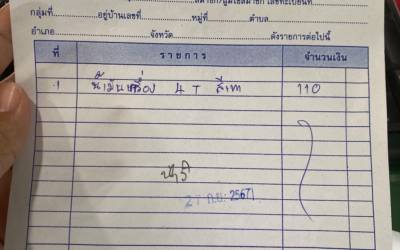 กลุ่มที่..............อยู่บ้านเลขที่..............หมู่ที่..............ตำบล..............
อำเภอ..............จังหวัด..............ดังรายการต่อไปนี้
ที่ รายการ จำนวนเงิน
1 น้ำมันเครื่อง 4T สีเทา 110
27 ก.ย. 2567